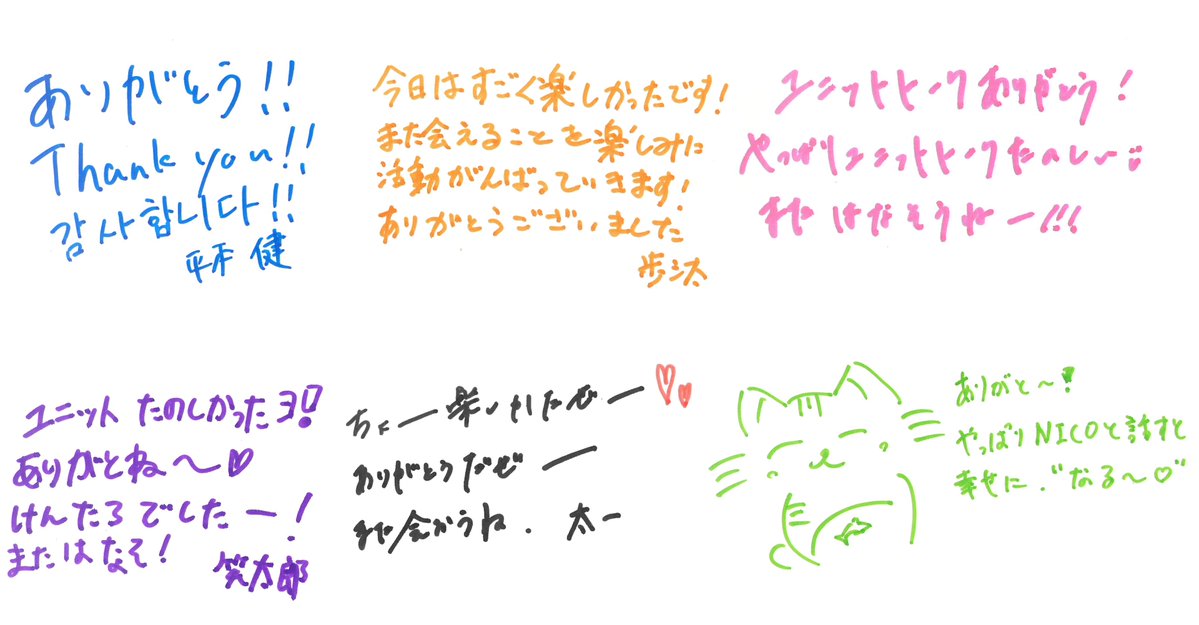 ありがとう!!
Thank you!!
감사합니다!!
平本 健
今日はすごく楽しかったです!
また会えることを楽しみに
活動がんばっていきます!
ありがとうございました
歩汰
ユニットトークありがとう!
やっぱりユニットトークたのしい〜
またはなそうねー!!!
ユニット たのしかったヨ!!
ありがとね〜♡
けんたろでした ー!
またはなそ!
笑太郎
ちょー楽しかたぜー♡♡
ありがとうだぜー
また会おうね. 太一
ありがと〜!
やっぱりNICOと話すと
幸せに.."なる〜♡"